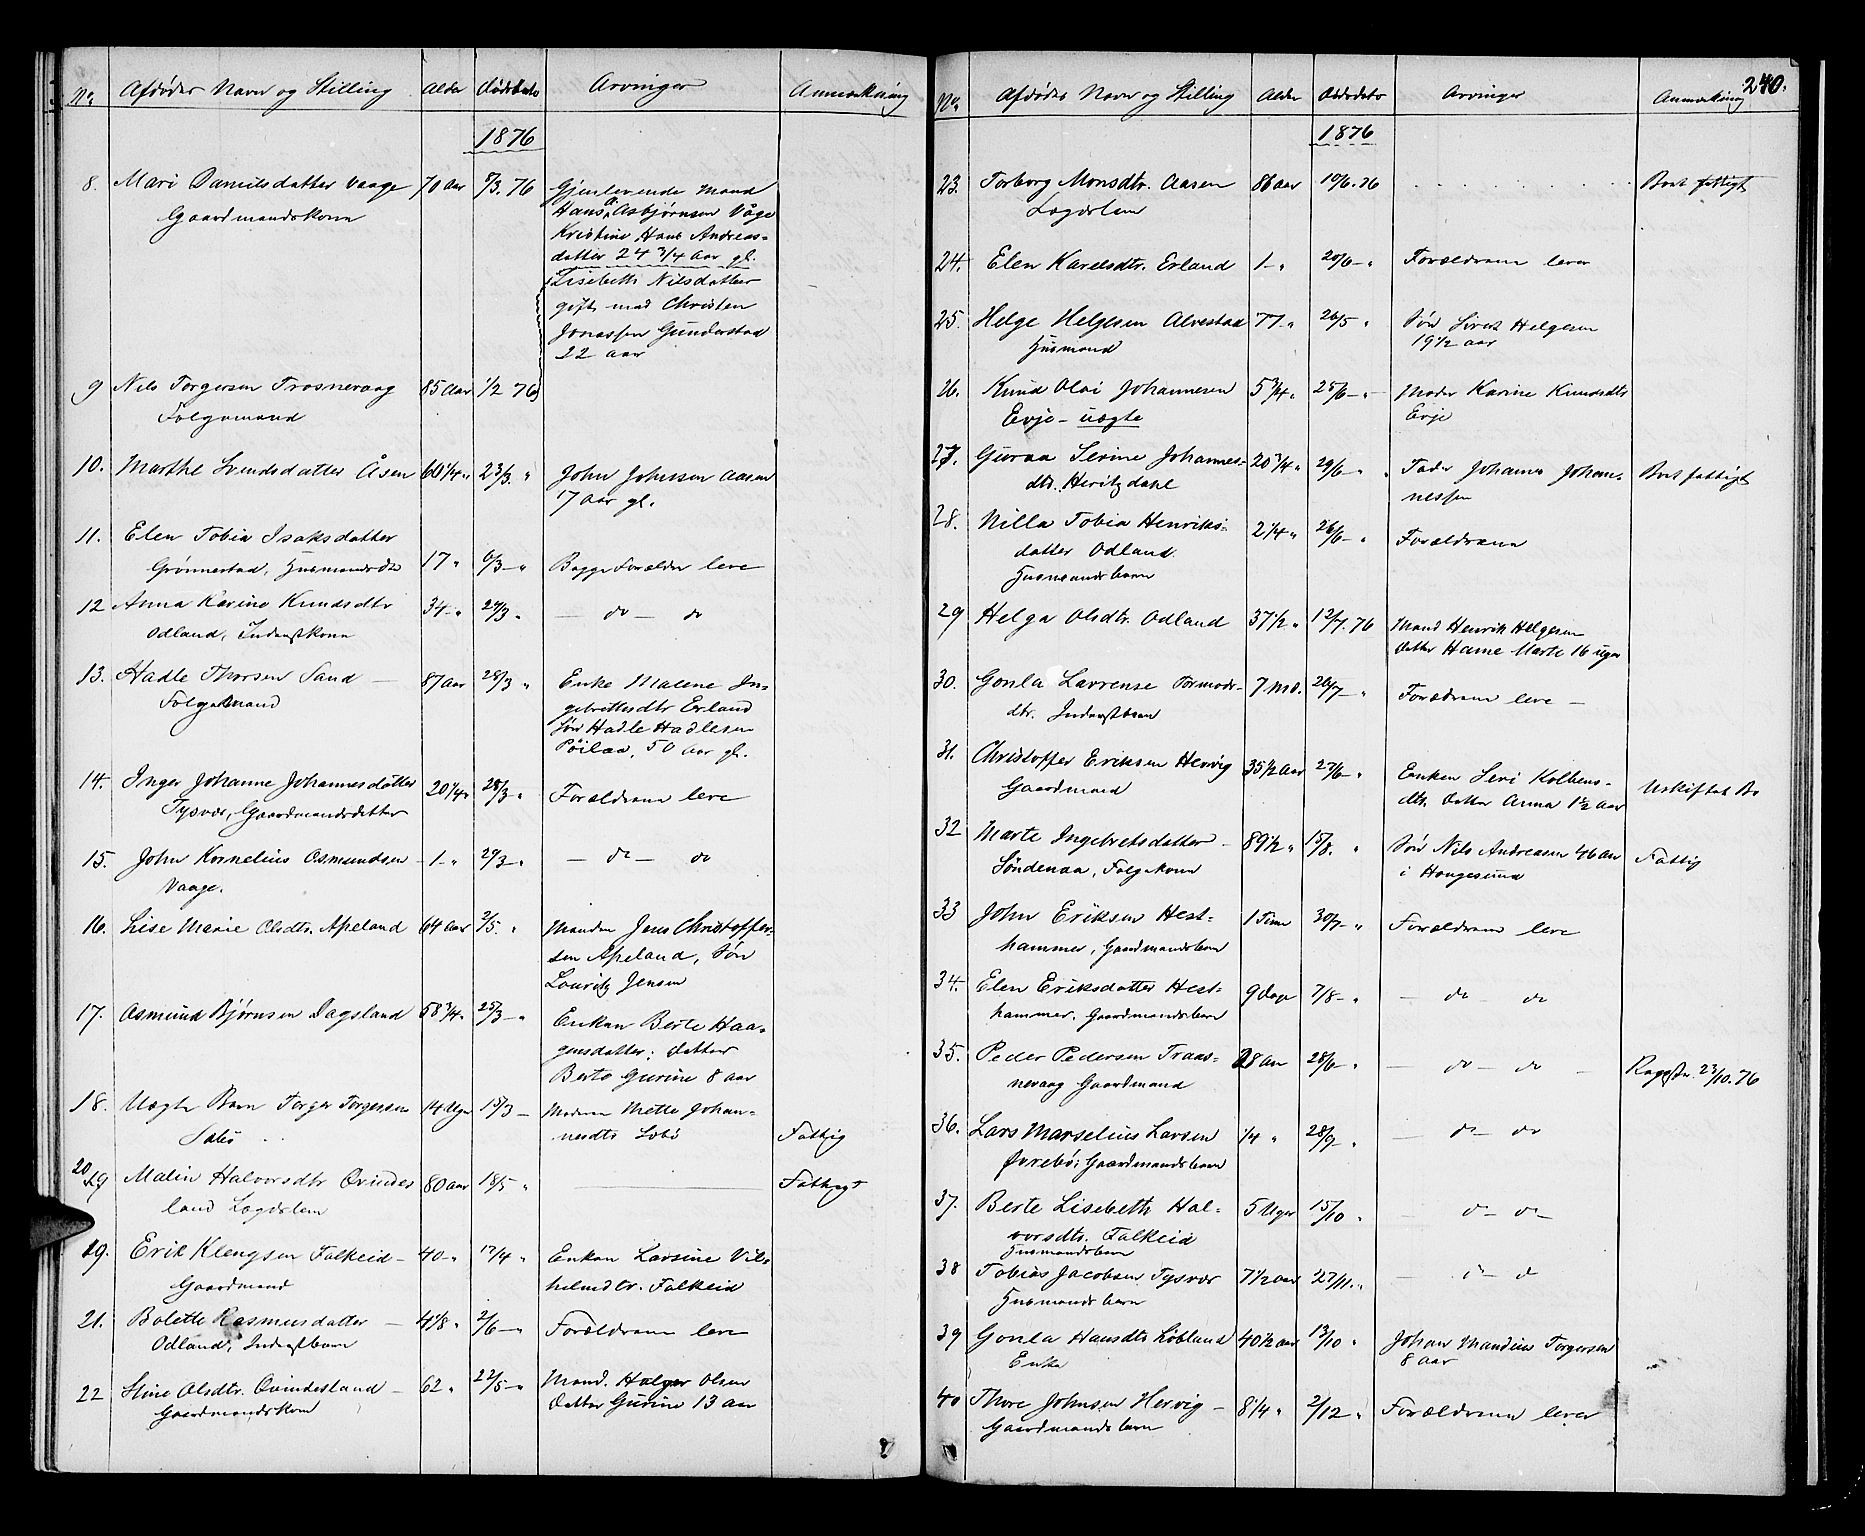 No. Afdødes Navn og Stilling Alder Dødsdato Arvinger Anmærkning
1876
8. Mari Danielsdatter Vaage 70 Aar 7/3. 76 Gjenlevende Mand
Gaardmandskone Hans Asbjørnsen Våge
Kristine Hans Andreas-
datter 24 3/4 Aar gl.
Lisebeth Nilsdatter
gift med Christen
Jonassen Gunderstad
22 aar
9 Nils Torgersen Trosnevaag 85 Aar 1/2 76
Folgemand
10. Marthe Svendsdatter Åsen 60 1/4 " 23/3. " John Johnsen Aasen
17 Aar gl.
11. Elen Tobia Isaksdatter
Grønnestad, Husmandsdtr 17 " 6/3 - " Begge Forældre leve
12 Anna Karine Knudsdtr 34 - " 24/3 " — do — do
Odland, Inderstkone
13. Hadle Thorsen Sand — 87 aar 28/3 " Enke Malene In-
Folgemand gebretsdtr Erland
Søn Hadle Hadlesen
50 Aar gl.
14. Inger Johanne Johannesdatter 20 1/4 " 28/3 - " Forældrene leve
Tysvær, Gaardmandsdatter
15. John Kornelius Osmundsen - 1 - " 29/3 - " — do — do
Vaage.
16. Lise Marie Olsdtr. Apeland 64 aar 2/5. " Manden Jens Christoffer-
sen Apeland, Søn
Lauritz Jensen
17. Osmund Bjørnsen Dagsland 58 3/4 " 25/3 - " Enken Berte Haa-
gensdatter; datter
Berte Gurine 8 aar
18. Uægte Barn Torger Torgersen 14 Uger 15/3 — Moderen Mette Johan-
nesdtr Fattig
20. 19 Malin Halvorsdtr Qvindes 80 aar 18/5 " Fattigt
land Lægdslem
19. Erik Klengsen Falkeid - 40 - " 17/4 " Enken Larsine Vil-
Gaardmand helmdtr. Falkeid
21. Bolette Rasmusdatter — 4 1/8 " 2/6 - " Forældrene leve
Odland, Inderstbarn
22 Stine Olsdtr. Qvindesland - 62 " 22/5 - " Mand. Holger Olsen
Gaardmandskone Datter Gurine 13 aar
240.
No. Afdødes Navn og Stilling Alder Dødsdato Arvinger Anmærkning
1876
23. Torborg Monsdtr. Aasen 86 aar 10/6. 76 Boet fattigt
Lægdslem
24. Elen Karelsdtr. Erland 1 - " 20/6 - " Forældrene lever
25. Helge Helgesen Alvestad 77 - " 26/5 " Søn Sivert Helgesen
Husmand 19 1/2 aar
26. Knud Olai Johannesen 5 3/4 " 25/6 - " Moder Karine Knudsdtr
Evje - uægte Evje
27. Guroa Serine Johannes- 20 3/4 " 29/6 - " Fader Johannes Johan- Boet fattigt
dtr. Heritzdahl nessen
28. Nilla Tobia Henriks- 2 1/4 " 26/6 - " Forældrene
datter Odland
Husmandsbarn
29 Helga Olsdtr. Odland 37 1/2 " 12/7. 76 Mand Henrik Helgesen
datter Hanne Marte 16 uger
30. Gonla Lavrense Tormods- 7 Md. 26/7 - " Forældrene leve —
dtr. Inderstbarn
31. Christoffer Eriksen Hervig 35 1/2 Aar 27/6 - " Enken Siri Kolbens- Uskiftet Bo
Gaardmand dtr. datter Anna 1 1/2 aar
32 Marte Ingebretsdatter - 89 1/2 " 15/8. " Søn Nils Andreasen 46 aar Fattig
Søndenaa, Folgekone i Haugesund
33 John Eriksen Hest- 1 Time 30/7 - " Forældrene leve
hammer, Gaardmandsbarn
34. Elen Eriksdatter Hest- 9 Dage 7/8 - " — do — do
hammer, Gaardmandsbarn
35. Peder Pedersen Traas- 28 aar 28/6 - " — do — do — 23/10. 76
nevaag Gaardmand
36. Lars Marselius Larsen 1/4 " 28/9 - " — do — do
Øvrebø, Gaardmandsbarn
37. Berte Lisebeth Hal- 5 Uger 15/10 " — do — do —
vorsdtr. Falkeid
Husmandsbarn
38 Tobias Jacobsen Tysvær 7 1/2 aar 27/11. " — d — d
Husmandsbarn
39 Gonla Hansdtr Løbland 40 1/2 aar 13/10 " Johan Mandius Torgersen
Enke 8 aar
40 Thore Johnsen Hervig — 8 1/4 " 2/12 " Forældrene lever
Gaardmandsbarn